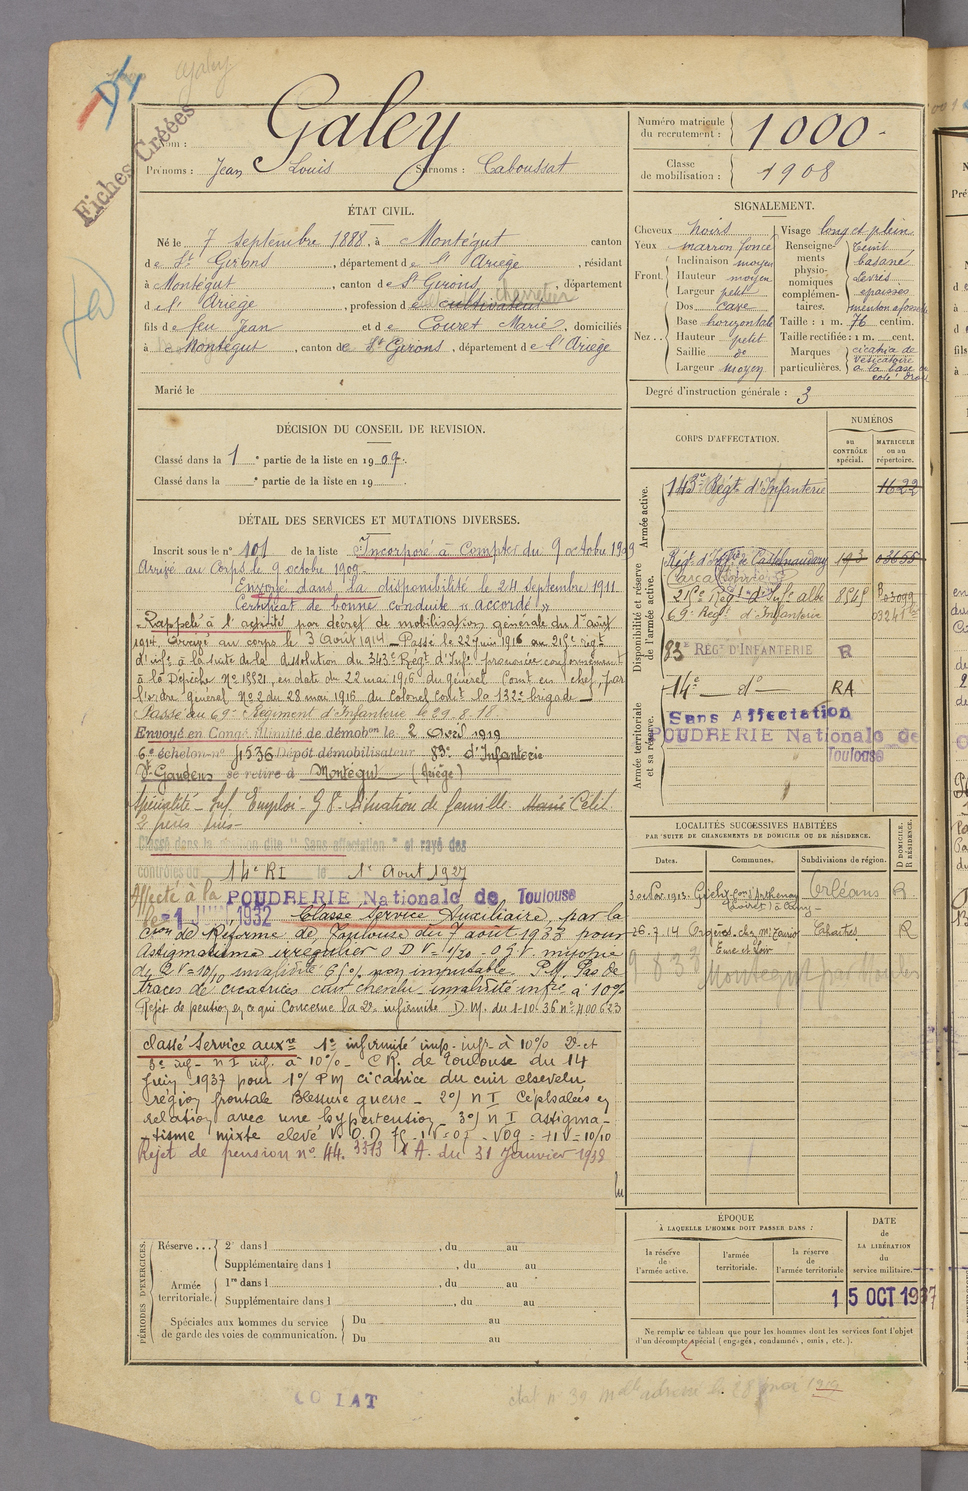 Galey
Fiches Créées
Nom : Galey
Prénoms : Jean Louis Surnoms : Caboussat
Numéro matricule du recrutement : 1000
Classe de mobilisation : 1908
ÉTAT CIVIL.
Né le 7 septembre 1888, à Montégut canton
de St Girons, département de l'Ariège, résidant
à Montégut, canton de St Girons, département
de l'Ariège, profession de cultivateur charretier
fils de feu Jean et de Couret Marie, domiciliés
à Montégut, canton de St Girons, département de l'Ariège
Marié le
SIGNALEMENT.
Cheveux noirs
Yeux marron foncé
Front. Inclinaison moyen
Hauteur moyen
Largeur petit
Nez. Dos cave
Base horizontale
Hauteur petit
Saillie do
Largeur moyen
Visage long et plein
Renseignements physionomiques complémentaires. Teint basané Lèvres épaisses
Taille : 1 m. 76 centim.
Taille rectifiée : 1 m. cent.
Marques particulières. cicatrice de vésicatoire à la base
Degré d'instruction générale : 3
DÉCISION DU CONSEIL DE REVISION.
Classé dans la 1e partie de la liste en 1909.
Classé dans la e partie de la liste en 19
DÉTAIL DES SERVICES ET MUTATIONS DIVERSES.
Inscrit sous le n° 101 de la liste Incorporé à compter du 9 octobre 1909
Arrivé au Corps le 9 octobre 1909.
Envoyé dans la disponibilité le 24 septembre 1911
Certificat de bonne conduite « accordé »
Rappelé à l'activité par décret de mobilisation générale du 1er août
1914. Arrivé au corps le 3 août 1914 - Passé le 22 juin 1916 au 215e régt
d'infie à la suite de la dissolution du 343e Régt d'Infie prononcée conformément
à la Dépêche No 15521, en date du 22 mai 1916 du général Comt en chef, par
l'ordre général No 2 du 28 mai 1916 du Colonel comt la 132e brigade -
Passé au 69e Régiment d'Infanterie le 29.8.18.
Envoyé en Congé illimité de démobon le 2 Avril 1919
6e échelon no 4536 Dépôt démobilisateur 83e d'Infanterie
St Gaudens se retire à Montégut (Ariège)
Spécialité - Inf. Emploi - G V. Situation de famille Marié Célib
Classé dans la position dite "Sans affectation" et rayé des
contrôles du 14e RI le 1e Août 1927
Affecté à la POUDRERIE Nationale de Toulouse
le 1 JUIN 1932 Classé Service Auxiliaire, par la
Cion de Réforme de Toulouse du 7 août 1933 pour
astigmatisme irrégulier O D V = 1/20 - O G V. myopie
invalidité 65% non imputable. P.M. Pas de
traces de cicatrices cuir chevelu invalidité infre à 10%
Rejet de pension en ce qui concerne la 2e infirmité D.M. du 1-10-36 n° 400623
classé Service auxre 1e infirmité imp. infr. à 10% 2e et
3e inf. n I inf. à 10% - C R. de Toulouse du 14
Juin 1937 pour 1°/ P M cicatrice du cuir chevelu
région frontale Blessure guerre - 2°/ n I Céphalées en
relation avec une hypertension 3°/ n I Astigma-
-tisme mixte élevé
Rejet de pension n° 44.3313 A. du 31 Janvier 1938
CORPS D'AFFECTATION.
NUMÉROS
au CONTRÔLE spécial.
MATRICULE ou au répertoire.
Armée active.
143e Régt d'Infanterie 1622
Disponibilité et réserve de l'armée active.
Régt d'Infie de Castelnaudary 193 03655
Carcassonne
215e Régt d'Infie
69e Régt d'Infanterie
83e RÉGt D'INFANTERIE R
Armée territoriale et sa réserve.
14e - do - RA
Sans Affectation
POUDRERIE Nationale de
Toulouse
LOCALITÉS SUCCESSIVES HABITÉES
PAR SUITE DE CHANGEMENTS DE DOMICILE OU DE RÉSIDENCE.
Dates. Communes. Subdivisions de région. D DOMICILE. R RÉSIDENCE.
3 octobre 1913. (Loiret) Orléans R
26.7.14 Orgères Eure et Loir Chartres R
ÉPOQUE
À LAQUELLE L'HOMME DOIT PASSER DANS :
la réserve de l'armée active.
l'armée territoriale.
la réserve de l'armée territoriale
DATE de LA LIBÉRATION du service militaire.
15 OCT 1937
Ne remplir ce tableau que pour les hommes dont les services font l'objet
d'un décompte spécial (engagés, condamnés, omis, etc.).
PÉRIODES D'EXERCICES.
Réserve... 2e dans l , du au
Supplémentaire dans l , du au
Armée territoriale. 1re dans l , du au
Supplémentaire dans l , du au
Spéciales aux hommes du service de garde des voies de communication. Du au
Du au